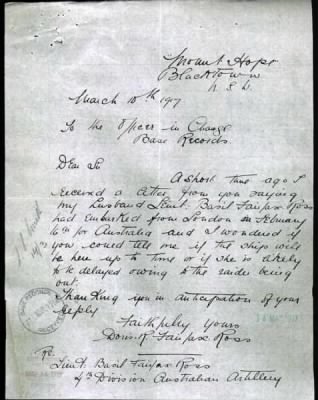 Mount Hope
Blacktown
N.S.W.
March 10th 1917
To the Officer in Charge
Base Records.
Dear Sir
A short time ago I
received a letter from you saying
my husband Lieut. Basil Fairfax Ross
had embarked from London on February
6th for Australia and I wondered if
you could tell me if the ships will
be here up to time or if she is likely
to be delayed owing to the raider being
out.
Thanking you in anticipation of your
reply
Faithfully Yours
Doris R. Fairfax Ross
Re.
Lieut. Basil Fairfax Ross
4th Division Australian Artillery